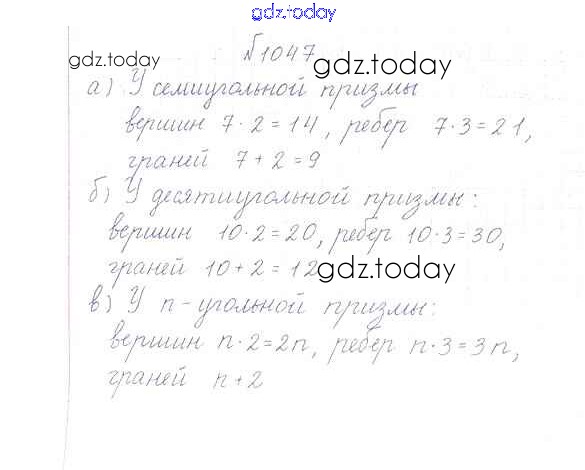 gdz.today
№1047
gdz.today
gdz.today
а) У семиугольной призмы
вершин 7·2=14, ребер 7·3=21,
граней 7+2=9
б) У десятиугольной призмы:
вершин 10·2=20, ребер 10·3=30,
граней 10+2=12
gdz.today
в) У n-угольной призмы:
вершин n·2=2n, ребер n·3=3n,
граней n+2